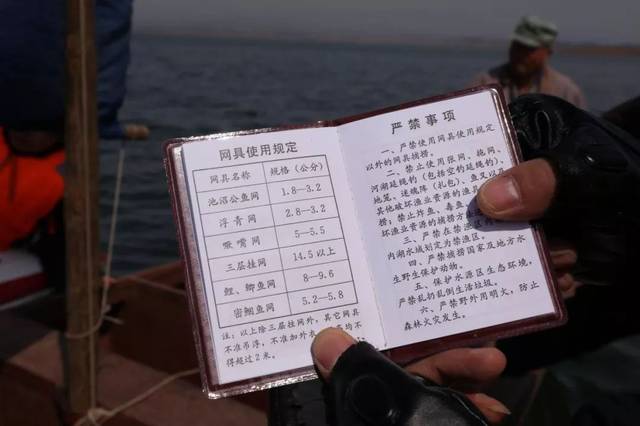 网具使用规定
网具名称 规格（公分）
池沼公鱼网 1.8—3.2
浮青网 2.8—3.2
噘嘴网 5—5.5
三层挂网 14.5以上
鲤、鲫鱼网 8—9.6
密鲴鱼网 5.2—5.8
注：以上除三层挂网外，其它网具
不准吊浮，不准加外衣
不
得超过2米。
严禁事项
一、严禁使用网具使用规定
以外的网具捕捞。
二、禁止使用张网、拖网、
河湖延绳钓（包括空钓延绳钓）、
地笼、迷魂阵（扎包）、鱼叉以及
其他破坏渔业资源的渔具
捞；禁止炸鱼、毒鱼
坏渔业资源的捕捞方
三、严禁在禁渔
内湖水域划定为禁渔区。
四、严禁捕捞国家及地方水
生野生保护动物。
五、保护水源区生态环境，
严禁乱扔乱倒生活垃圾。
六、严禁野外用明火，防止
森林火灾发生。